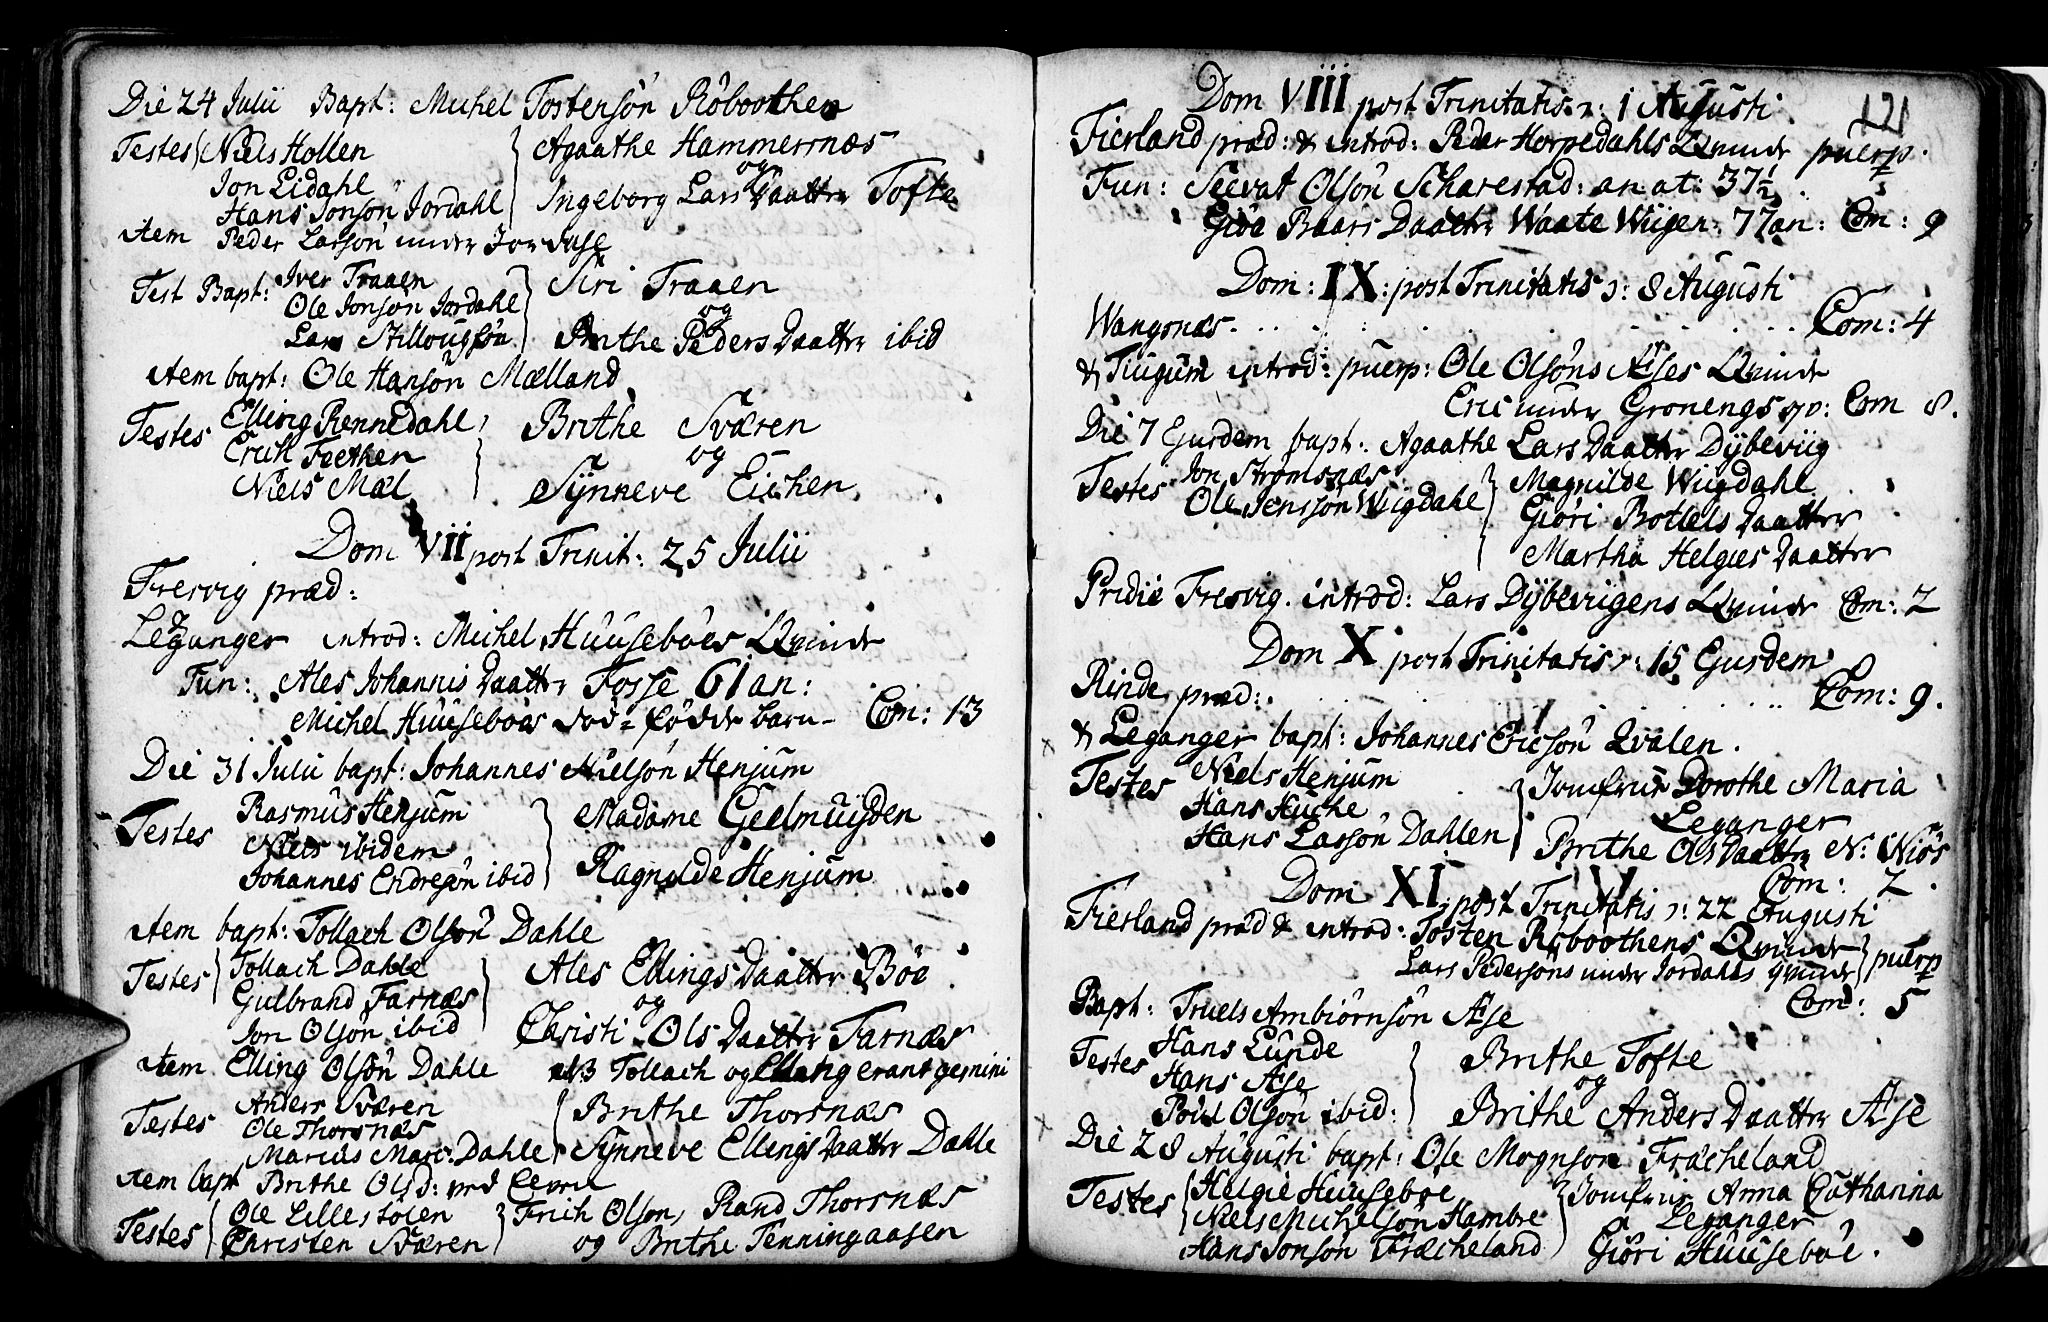 Die 24 Julii Bapt: Michel Tostensön Röboothen
Testes Niels Hollen Agaathe Hammersnæs
Jon Eidahl og
Hans Jonsön Jordahl Ingeborg Lars Daatter Tofte
item Peder Larsön under
Test Bapt: Iver Traaen Siri Traaen
Ole Jonsön Jordahl og
Lars Brithe Peders Daatter ibid
item bapt: Ole Hansön Mælland
Testes Elling Rennedahl Brithe Sværen
Erich Feethen og
Niels Mæl Synneve Eichen
Dom VII post Trinit: 25 Julii
Fresvig præd:
Leganger introd: Michel Huuseböes Qvinde
Fun: Ales Johannis Daatter Fosse 61 an:
Michel Huuseböes död-födde barn Com: 13
Die 31 Julii bapt: Johannes Nielsön Henjum
Testes Rasmus Henjum Madame Geelmuijden
Niels ibidem
Johannes Endresön ibid Ragnilde Henjum
item bapt: Tollach Olsön Dahle
Testes Tollach Dahle Ales Ellings Daatter Böe
Gulbrand Farnæs og
Jon Olsön ibid Christi Ols Daatter Farnæs
item Elling Olsön Dahle NB Tollach og Elling erant gemini
Testes Anders Sværen Brithe Thorsnæs
Ole Thorsnæs
Marcus Marc: Dahle Synneve Ellings Daatter Dahle
item bapt Brithe Olsd: ved
Testes Ole Lillestölen Erich Olson, Rand Thorsnæs
Christen Sværen og Brithe Tenningaasen
121
Dom VIII post Trinitatis: 1 Augusti
Fierland præd: & introd: Peder Horpedahls Qvinde puerp.
Fun: Seevat Olsön Scharestad: an æt: 37½
Giöe Baars Daatter Waate Wiigen: 77 an: Com: 9
Dom: IX: post Trinitatis: 8 Augusti
Wangsnæs Com: 4
& Tiugum introd: puerp: Ole Olsöns Ases Qvinde
Eric under Gronengs Com 8.
Die 7 Ejusdem bapt: Agaathe Lars Daatter Dybeviig
Testes Jon Strömsnæs Magnilde Wiigdahl
Ole Jensson Wiigdahl Giöri Botlels Daatter
Martha Helgies Daatter
Pridie Fresvig. introd: Lars Dybeviigens Qvinde Com: 2
Dom X post Trinitatis: 15 Ejusdem
Rinde præd: Com: 9.
& Leganger bapt: Johannes Ericsön Qvalen.
Testes Niels Henjum Jomfrue Dorothe Maria
Hans Husche Leganger
Hans Larsön Dahlen Brithe Ols Daatter N: Niös
Com: 2.
Dom XI post Trinitatis: 22 Augusti
Fierland præd & introd: Tosten Röboothens Qvinde puerp
Lars Pedersöns under Jordahls qvinde
Com: 5
Bapt: Truels Ambiörnsön Ase
Testes Hans Lunde Brithe Tofte
Hans Ase og
Poul Olsön ibid: Brithe Anders Daatter Ase
Die 28 Augusti bapt: Ole Mognsön Fræcheland
Testes Helgie Huuseböe Jomfrue Anna Catharina
Niels Michelsön Hambre Leganger
Hans Jonsön Fræcheland Giöri Huuseböe.